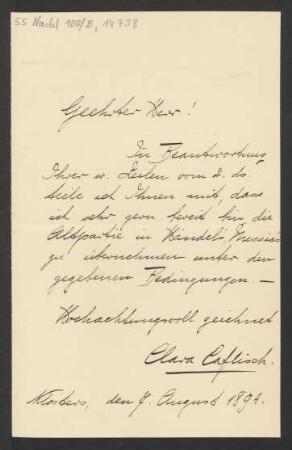 55 Nachl 100/B, 14738
Geehrter Herr!
In Beantwortung
Ihrer w. Zeilen vom 2. ds.
teile ich Ihnen mit, dass
ich sehr gern bereit bin die
Altpartie in Händel's Messias
zu übernehmen unter den
gegebenen Bedingungen. —
Hochachtungsvoll zeichnet
Clara Caflisch.
Klosters, den 7. August 1894.